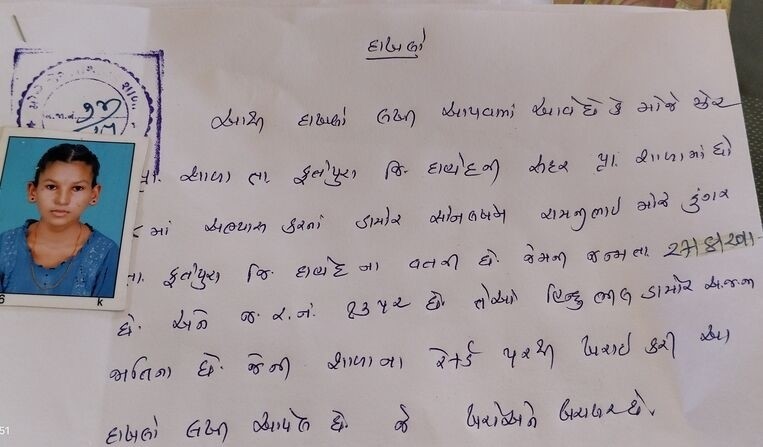 દાખલો
આથી દાખલો લખી આપવામાં આવે છે કે મોજે
પ્રા. શાળા તા. ફતેપુરા જિ. દાહોદની સદર પ્રા. શાળામાં ધો
માં અભ્યાસ કરતાં ડામોર સોનલબેન રામજીભાઇ મોજે ડુંગર
તા. ફતેપુરા જિ. દાહોદ ના વતની છે. જેમની જન્મ તા.
છે. અને જ. ર. નં. ૧૩૫૨ છે. તેઓ હિન્દુ ભીલ ડામોર અ.જ.જા
જાતિના છે. જેની શાળાના રેકર્ડ પરથી ખરાઇ કરી આ
દાખલો લખી આપેલ છે. જે ખરોઅને બરાબર છે.
k